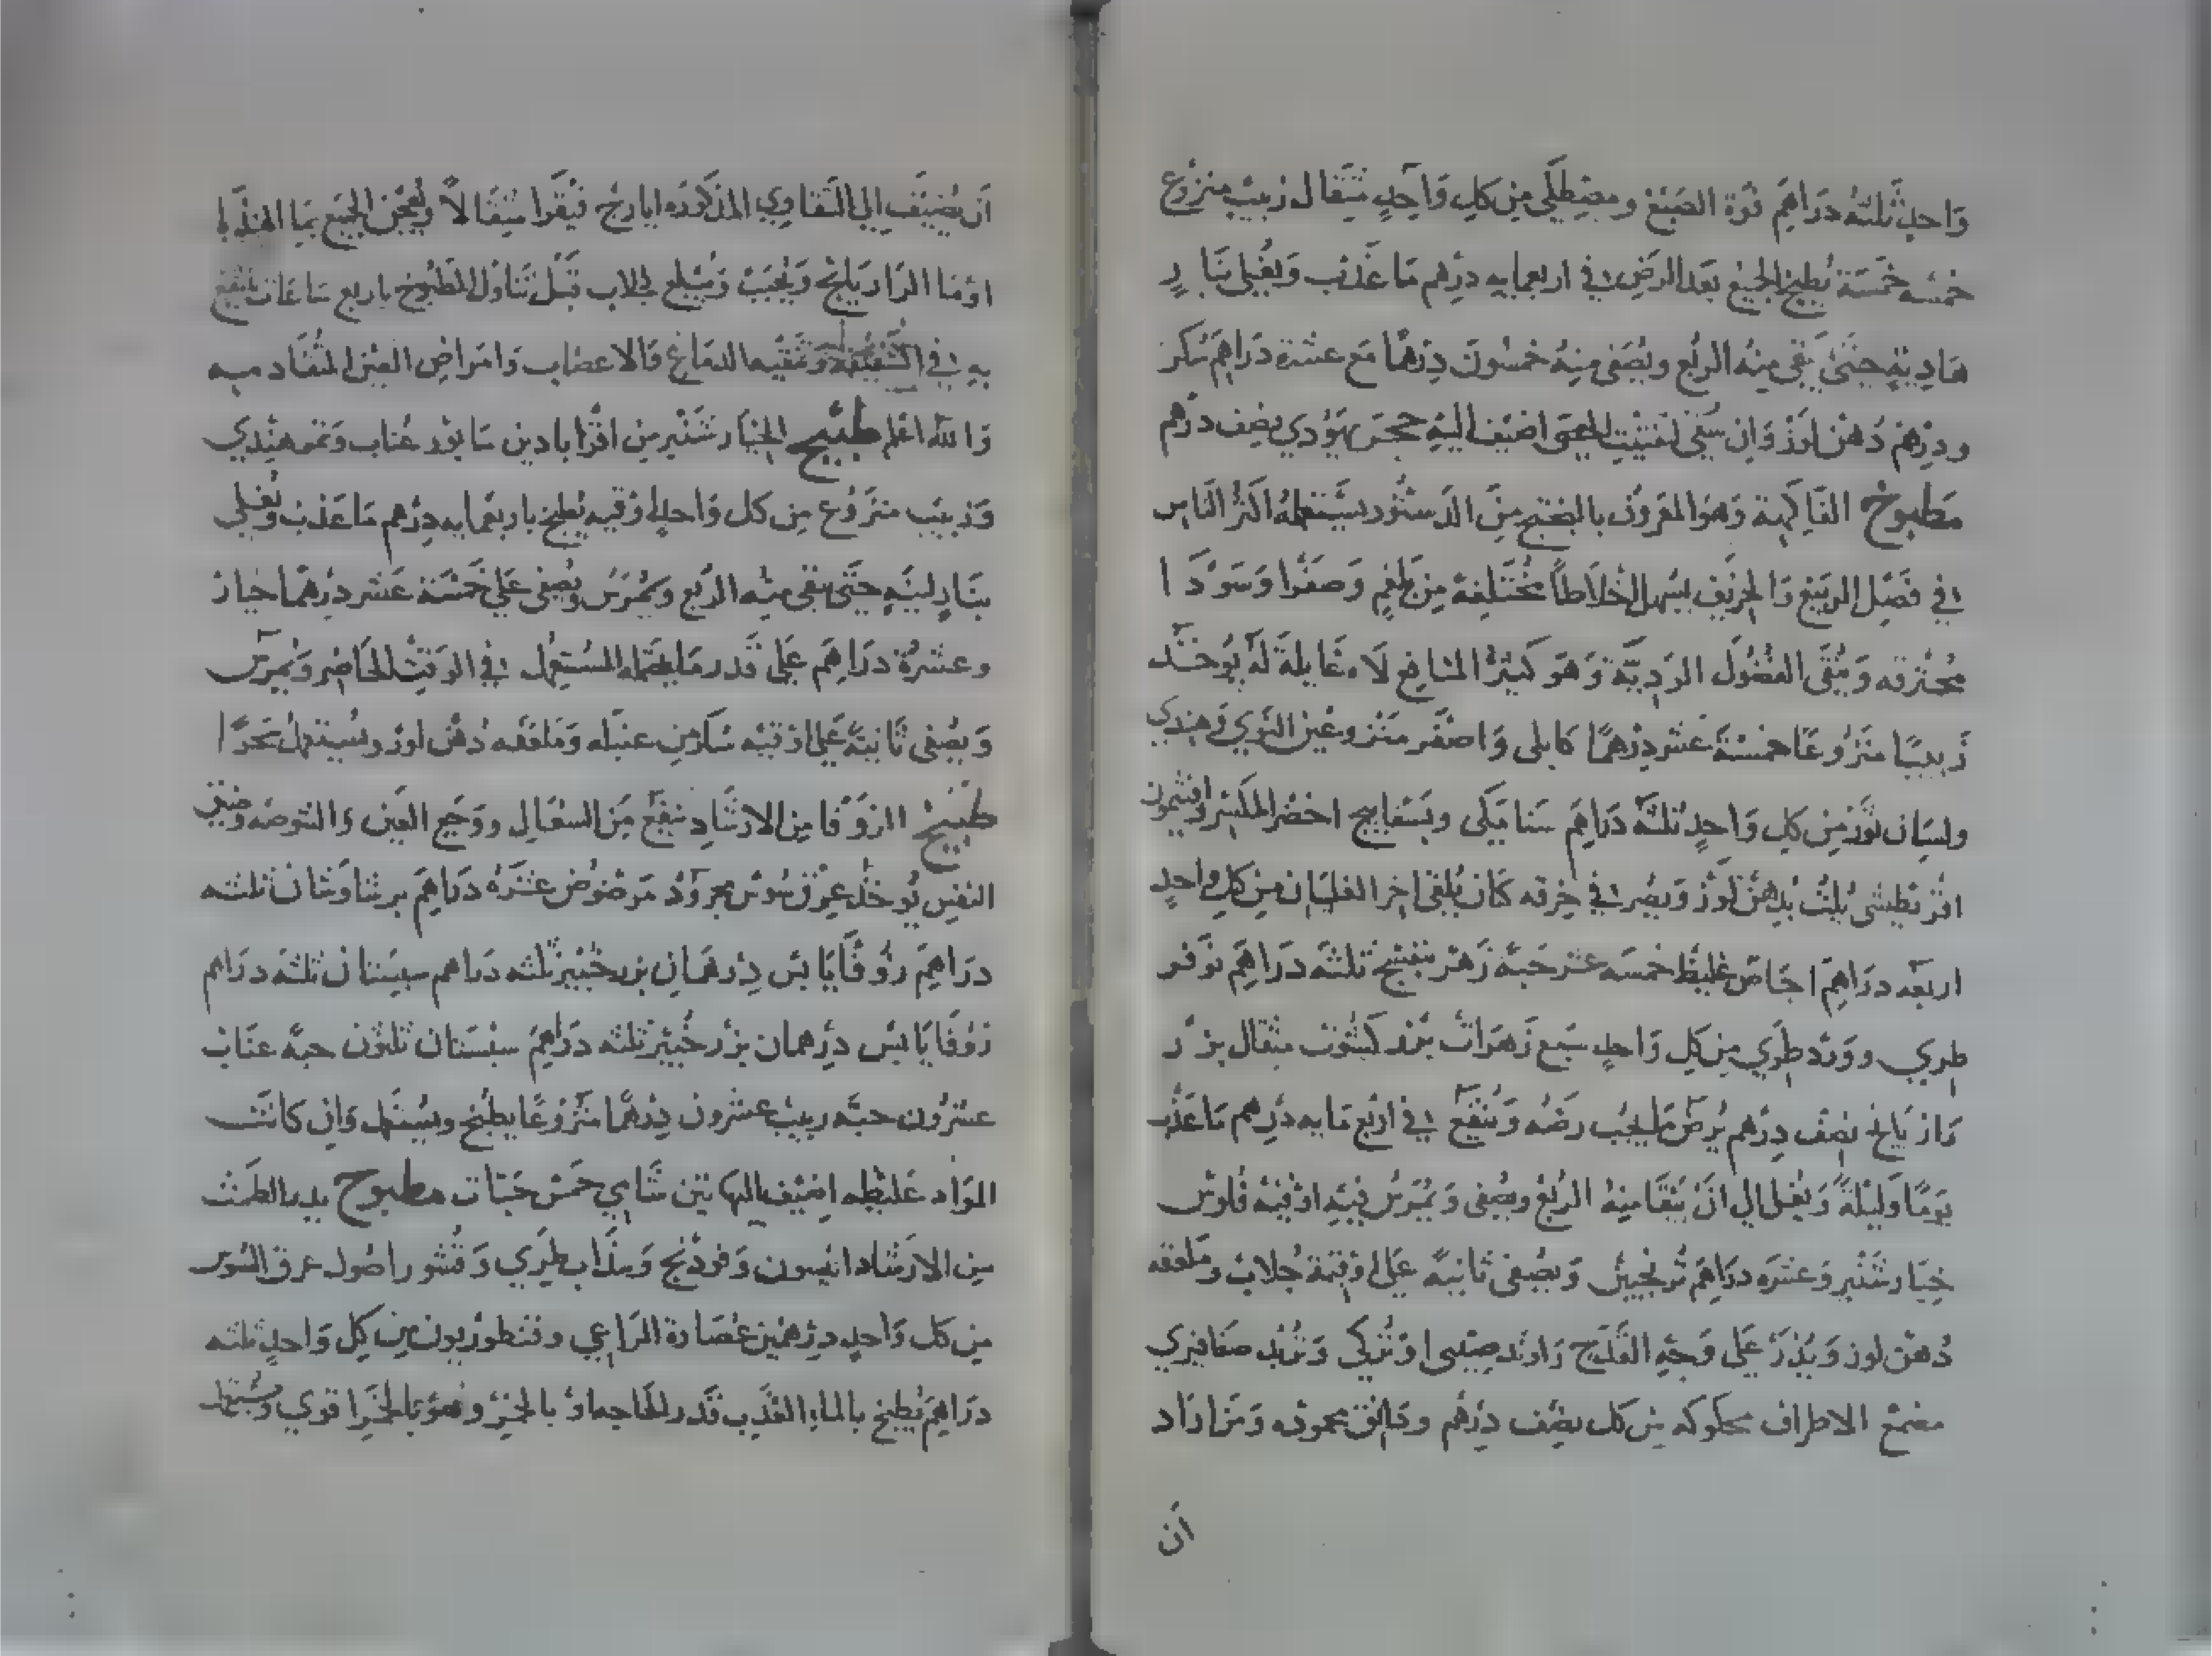 وَاحدٍ ثَلثَهُ دَرَاهَم فوّة الصَبغ ومصْطِلَى مِن كلِ وَاحِدٍ مثقال زبيب منزوع
خمسه خَمسَة يُطبخ الجميع بَعد الرَض في اربعمايه درهم مَا عَذب وَيغلى بنَارٍ
هَادِيَةٍ حَتَّى يَبقى مِنهُ الربع ويُصَفى منِهُ خمسُونَ دِرهمًا مَع عشرة دَرَاهَم سُكر
ودرِهمْ دُهنْ لوَز وَان سُقى لتفتيت الحصى اضيف اليَهِ حجَر يهَودي نصِف درَهم
مَطبوخْ الفَاكهَة وَهوَ المعَروُف بالبضتج مِنَ الدَستُور يسَتعملهُ اكثَر النَاس
في فصَل الربيَع وَالخِريَف يسُهل اخلاَطاً مُختَلِفة مِن بَلغمٍ وَصَفرا وَسَودَا
مُحترقه وَينُقى الفُضُولَ الردِيَّة وَهوَ كثَيرُ المنَافِع لاَ غَايلَة لهُ يوُخَذ
زَبيبًا منَزُوعًا خمسَةَ عشَر درِهمًا كابلى وَاصفَر مَنزوعَين النَوي وَهِندي
ولسَان ثَور مِن كل وَاحدٍ ثلثَة دَرَاهمَ سَنا مَكى وبَسَفايج اخضَر المكَسر وافتيمون
اقرَيطشى يُلتُ بدُهن لَوز وَيصُر في خِرقه كتَان يُلقى اخر الغليَان مِن كلِ وَاحدٍ
اربعَه درَاهِم اجَاص غليظ خمسَه عشر حَبَّه زَهر بَنفسَج ثلثَه دَرَاهَم نوَفر
طري ووَرد طرَي مِن كل وَاحدٍ سَبع زَهَرات بَزر كشُوت مثِقال بزر
رَازيَانج نصِف درِهم يُرضّ مَا يجُب رَضُه وَينُقَع في ارَبع مَايه درِهم مَا عَذب
يوَمًا وَليَلةً وَيغُلى الي انَ يَبقَا مِنهُ الربُع ويصُفى وَيمُرَسُ فيَه اوُقيَه فلُوس
خِيَار شَنبر وَعشَره درَاهَم تُرنجُبين وَيصُفى ثانيه عَلى اوُقيَة جُلاب ومَلعقَه
دُهن لوز وَيذُرَ عَلى وَجَهِ القَدَح رَاونَد صِينى اوَ تُركي وَترُبد صَفافيري
مصَمغ الاطراف محكوكه مِن كل نصِف درِهم ودَانق محمودَه وَمَن ارَاد
اَن
اَن يُضيَف الي التَفاوي المذَكورَه ايارج فيَقرا مثِقَالاً ويُعجَن الجميَع بمَا الهندَبا
اوَ مَا الرَازيَانج وَيحُبَبْ وَيبُلع بجلاب قَبَل تنَاول المَطبُوخ باربع سَاعَات ينَتفَع
بهِ في الشَقيقَه وَتنَقيَه الدمَاغ وَالاعصَاب وَامَراض العيَن المتُقَادمه
وَالله اعلم طَبيْخ الخيَار شَنبر مِن اقَرابادين سَابوُر عنُاب وَتمر هِندي
وَزبيَب منَزوُع مِن كل وَاحدٍ اوُقيه يُطبخ باربعمايه درِهم مَا عَذب وَيغُلى
بنَارٍ لينَهٍ حتَى يبَقى منِه الربُع وَيمُرسُ ويصُفى عَلى خَمسَة عَشر درِهمًا خيار
وعشَرُة درَاهَم عَلى قَدر مَا يحَتمله المستُعِمل في الوَقتِ الحَاضِر وَيمُرَس
وَيصُفى ثَانيَةً عَلى اوُقيَه سُكر مِن عسَله وَمَلعقَه دُهن لوز ويسُتعمل سَحَرًا
طَبيْخْ الزوَفا مِن الارشَادِ ينَفَع مِن السعُال ووجَع العيَن وَالشوصَه وَضيق
النفَس يوُخذُ عِرق سُوس مجروُد مَرضوُض عشَرَه درَاهِم برشاوَشان ثلثَه
درَاهِم زوُفَا يَابسَ درِهمَانِ بزر خُبيز ثلثَه درَاهم سبِستان ثلثَه درَاهم
زوُفَا يَابسَ درِهمان بزُر خُبيز ثلثَه درَاهِم سبسَتان ثلثوُن حبه عنَاب
عشرُون حبَّه زبيب عشَروُن درِهمًا منَزوُعًا يطُبخ ويسُتعَمل وَان كانَت
الموَاد غليَظه اضِيف اليَها تيَن شَامي خَمسَ حَبَات مطبوخ يدر الطمَث
مِن الارَشاد انيسون وَفوذَنج وَسذَاب طَري وَقشُور اصُول عرق السُوس
مِن كل وَاحدٍ درِهمَين عصُارة الرَاعي وقنطوريون مِن كِل وَاحدٍ ثلثَه
درَاهِم يطُبخ بالماء العذَب قَدر الحَاجه او بالخَمر وهوَ بالخَمر اقوي ويسُتعمل